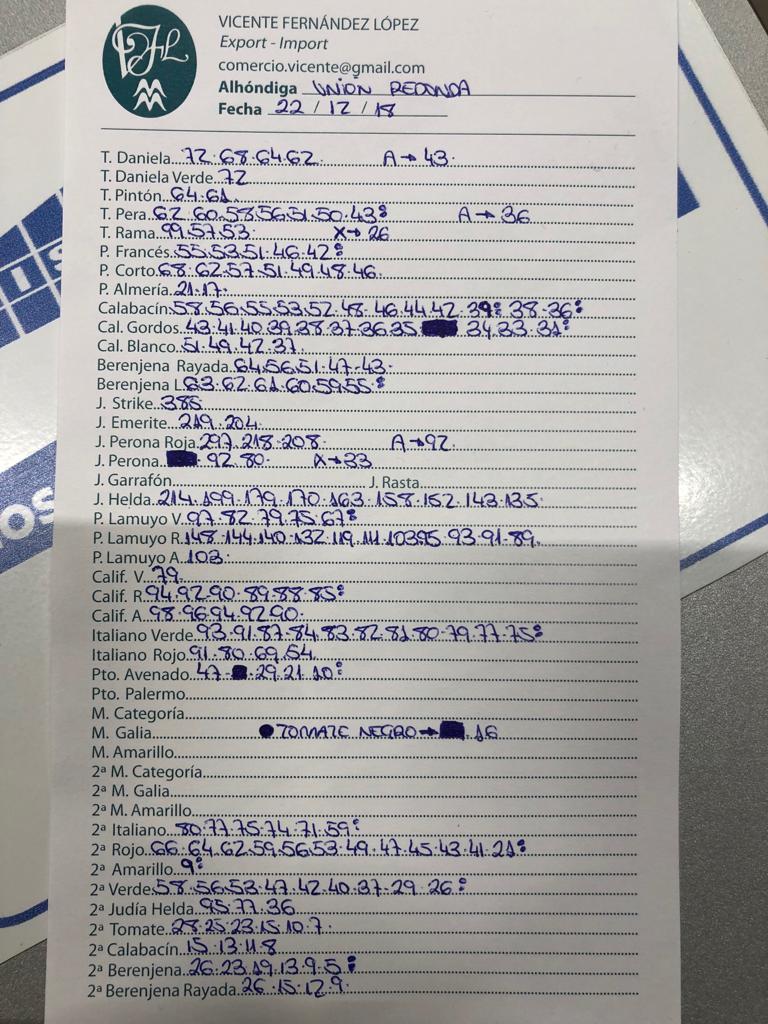 VICENTE FERNÁNDEZ LÓPEZ
Export - Import
comercio.vicente@gmail.com
Alhóndiga UNION REDONDA
Fecha 22 / 12 / 18
T. Daniela...72.68.64.62. A→43.
T. Daniela Verde.72
T. Pintón.64.61.
T. Pera.62.60.58.56.51.50.43: A→36
T. Rama.99.57.53. X→26
P. Francés.55.53.51.46.42:
P. Corto.68.62.57.51.49.48.46.
P. Almería.21.17.
Calabacín.58.56.55.53.52.48.46.44.42.39: 38.36:
Cal. Gordos.43.41.40.39.38.37.36.35. 34.33.31:
Cal. Blanco.51.49.42.37.
Berenjena Rayada.64.56.51.47.43.
Berenjena L.63.62.61.60.59.55:
J. Strike.385
J. Emerite.219.204.
J. Perona Roja.297.218.208. A→92.
J. Perona. 92.80. X→33
J. Garrafón J. Rasta
J. Helda.214.199.179.170.163.158.152.143.135.
P. Lamuyo V.97.82.79.75.67:
P. Lamuyo R.148.144.140.132.119.111.103.95.93.91.89.
P. Lamuyo A.103.
Calif. V.79.
Calif. R.94.92.90.89.88.85:
Calif. A.98.96.94.92.90.
Italiano Verde.93.91.87.84.83.82.81.80.79.77.75:
Italiano Rojo.91.80.69.54.
Pto. Avenado.47. 29.21.10:
Pto. Palermo
M. Categoría
M. Galia ●TOMATE NEGRO→ .16
M. Amarillo
2ª M. Categoría
2ª M. Galia
2ª M. Amarillo
2ª Italiano.80.77.75.74.71.59:
2ª Rojo.66.64.62.59.56.53.49.47.45.43.41.21:
2ª Amarillo.9:
2ª Verde.58.56.53.47.42.40.37.29.26:
2ª Judía Helda.95.77.36
2ª Tomate.28.25.23.15.10.7.
2ª Calabacín.15.13.11.8
2ª Berenjena.26.23.19.13.9.5:
2ª Berenjena Rayada.26.15.12.9.